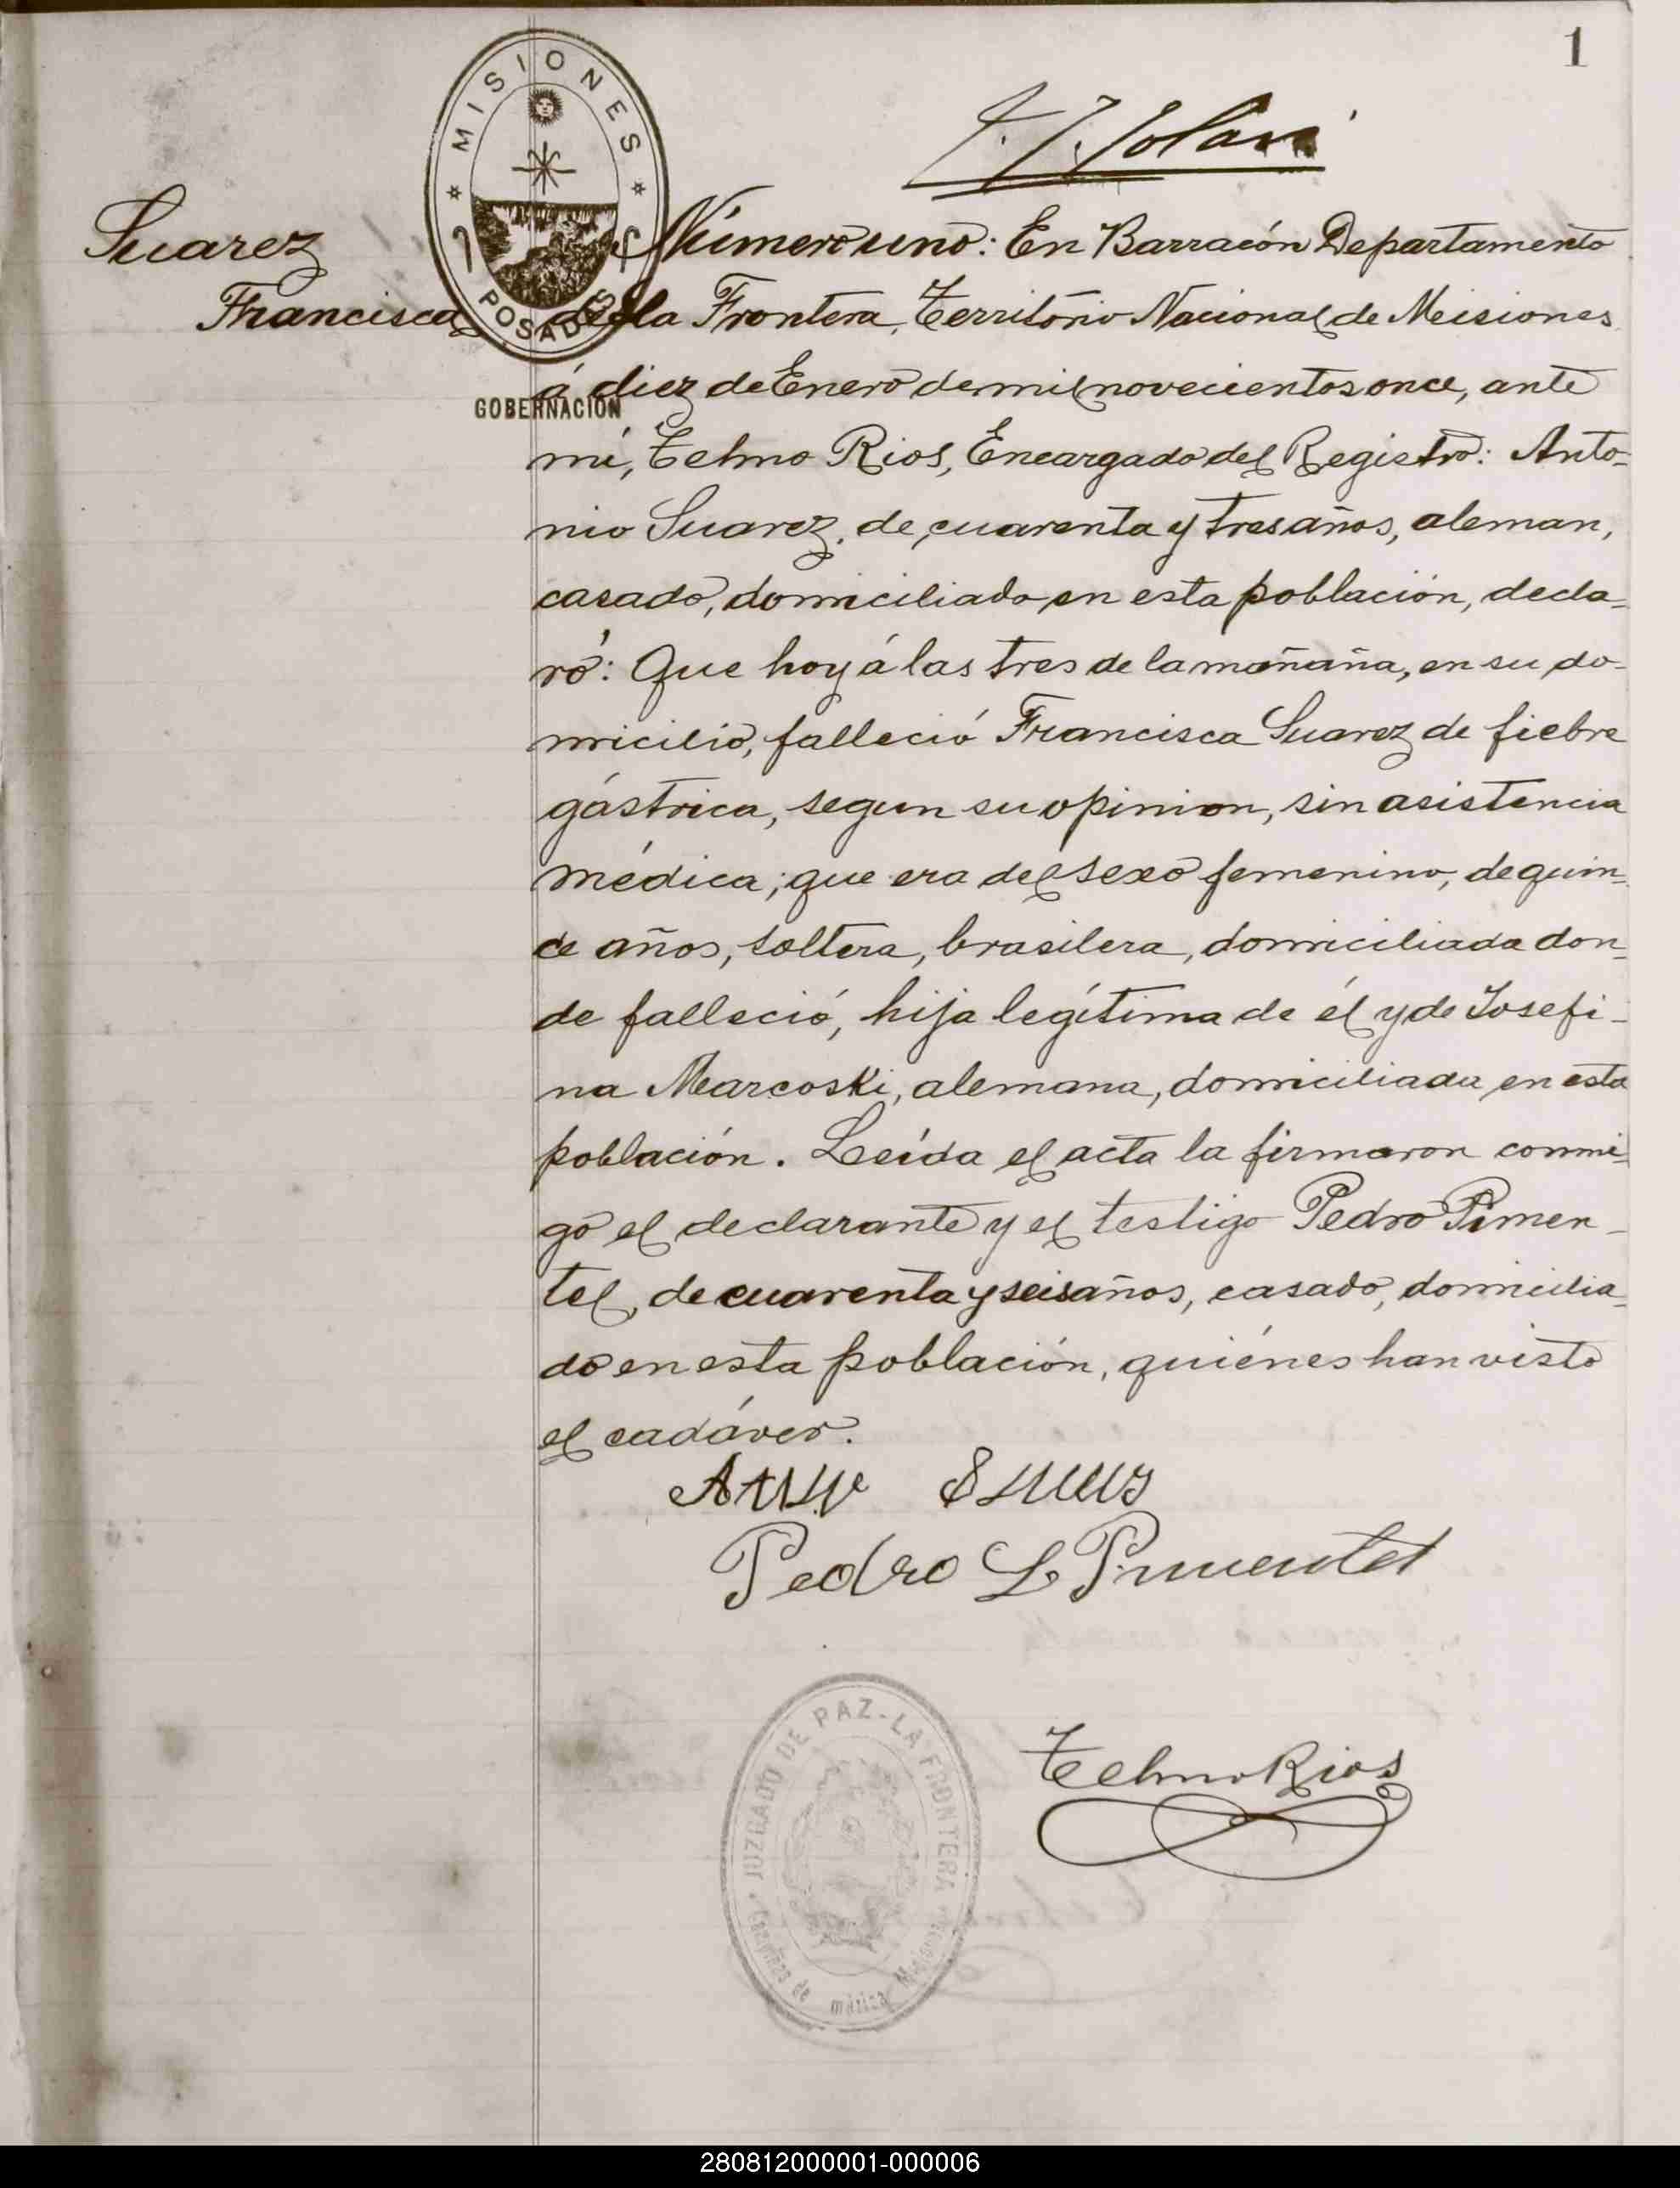 1
MISIONES
POSADAS
GOBERNACION
Suarez
Francisca
Número uno: En Barracón Departamento
de la Frontera, Territorio Nacional de Misiones
á diez de Enero de mil novecientos once, ante
mí, Telmo Rios, Encargado del Registro: Anto=
nio Suarez, de cuarenta y tres años, aleman,
casado, domiciliado en esta población, decla=
ró: Que hoy á las tres de la mañana, en su do-
micilio, falleció Francisca Suarez de fiebre
gástrica, segun su opinion, sin asistencia
médica; que era del sexo femenino, de quin=
ce años, soltera, brasilera, domiciliada don=
de falleció, hija legítima de él y de Josefi-
na Marcoski, alemana, domiciliada en esta
población. Leída el acta la firmaron conmi=
go el declarante y el testigo Pedro Pimen-
tel, de cuarenta y seis años, casado, domicilia=
do en esta población, quiénes han visto
el cadáver.
Pedro L Pimentel
Telmo Rios
JUZGADO DE PAZ - LA FRONTERA
Misiones
280812000001-000006